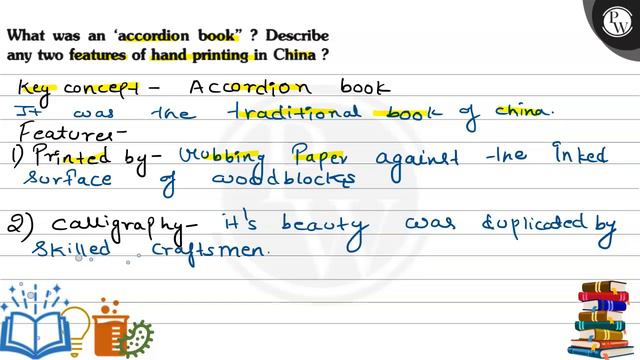 What was an 'accordion book" ? Describe
any two features of hand printing in China ?
Key concept - Accordion book
It was the traditional book of china.
Features-
1) Printed by- rubbing Paper against the Inked
surface of woodblocks
2) Calligraphy- it's beauty was duplicated by
skilled craftsmen.
PW